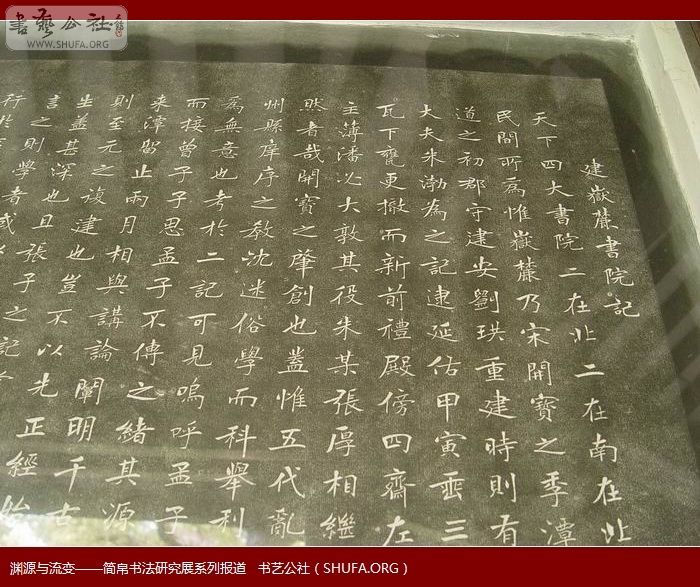 書藝公社
WWW.SHUFA.ORG
建嶽麓書院記
天下四大書院二在北二在南在北
民間所為惟嶽麓乃宋開寶之季潭
道之初郡守建安劉珙重建時則有
大夫朱渤為之記逮延佑甲寅垂三
瓦下甕更撤而新前禮殿傍四齋左
主薄潘必大敦其役朱某張厚相繼
然者哉開寶之肇創也蓋惟五代亂
州縣庠序之教沈迷俗學而科舉利
為無意也考於二記可見嗚呼孟子
而接曾子子思孟子不傳之緒其源
來潭留止兩月相與講論闡明千古
則至元之復建也豈不以先正經始
坐蓋甚深也且張子之記
言之則學者或
行於
渊源与流变——简帛书法研究展系列报道 书艺公社（SHUFA.ORG）